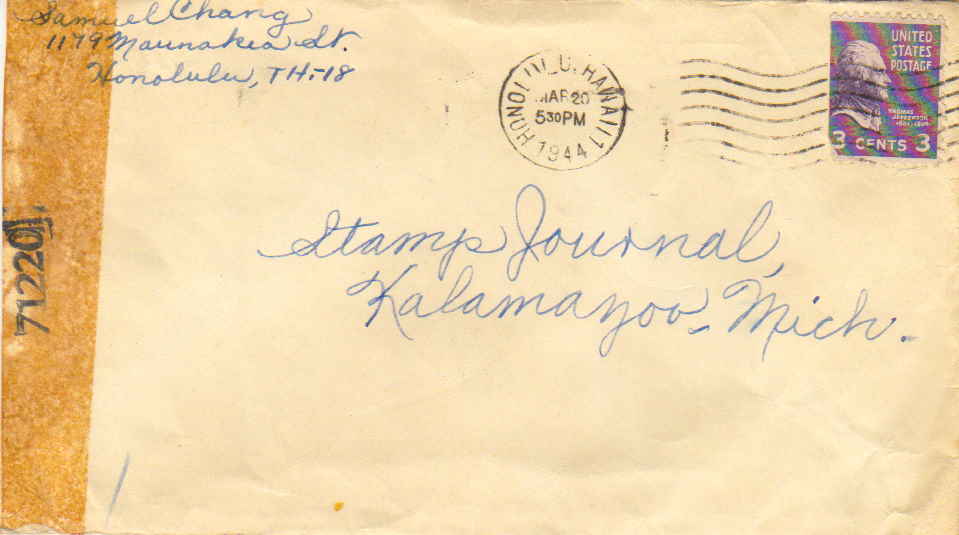 Samuel Chang
1179 Maunakea St.
Honolulu, TH-18
HONOLULU, HAWAII 1
MAR 20
530 PM
1944
UNITED
STATES
POSTAGE
THOMAS
JEFFERSON
3 CENTS 3
Stamps Journal,
Kalamazoo, Mich.